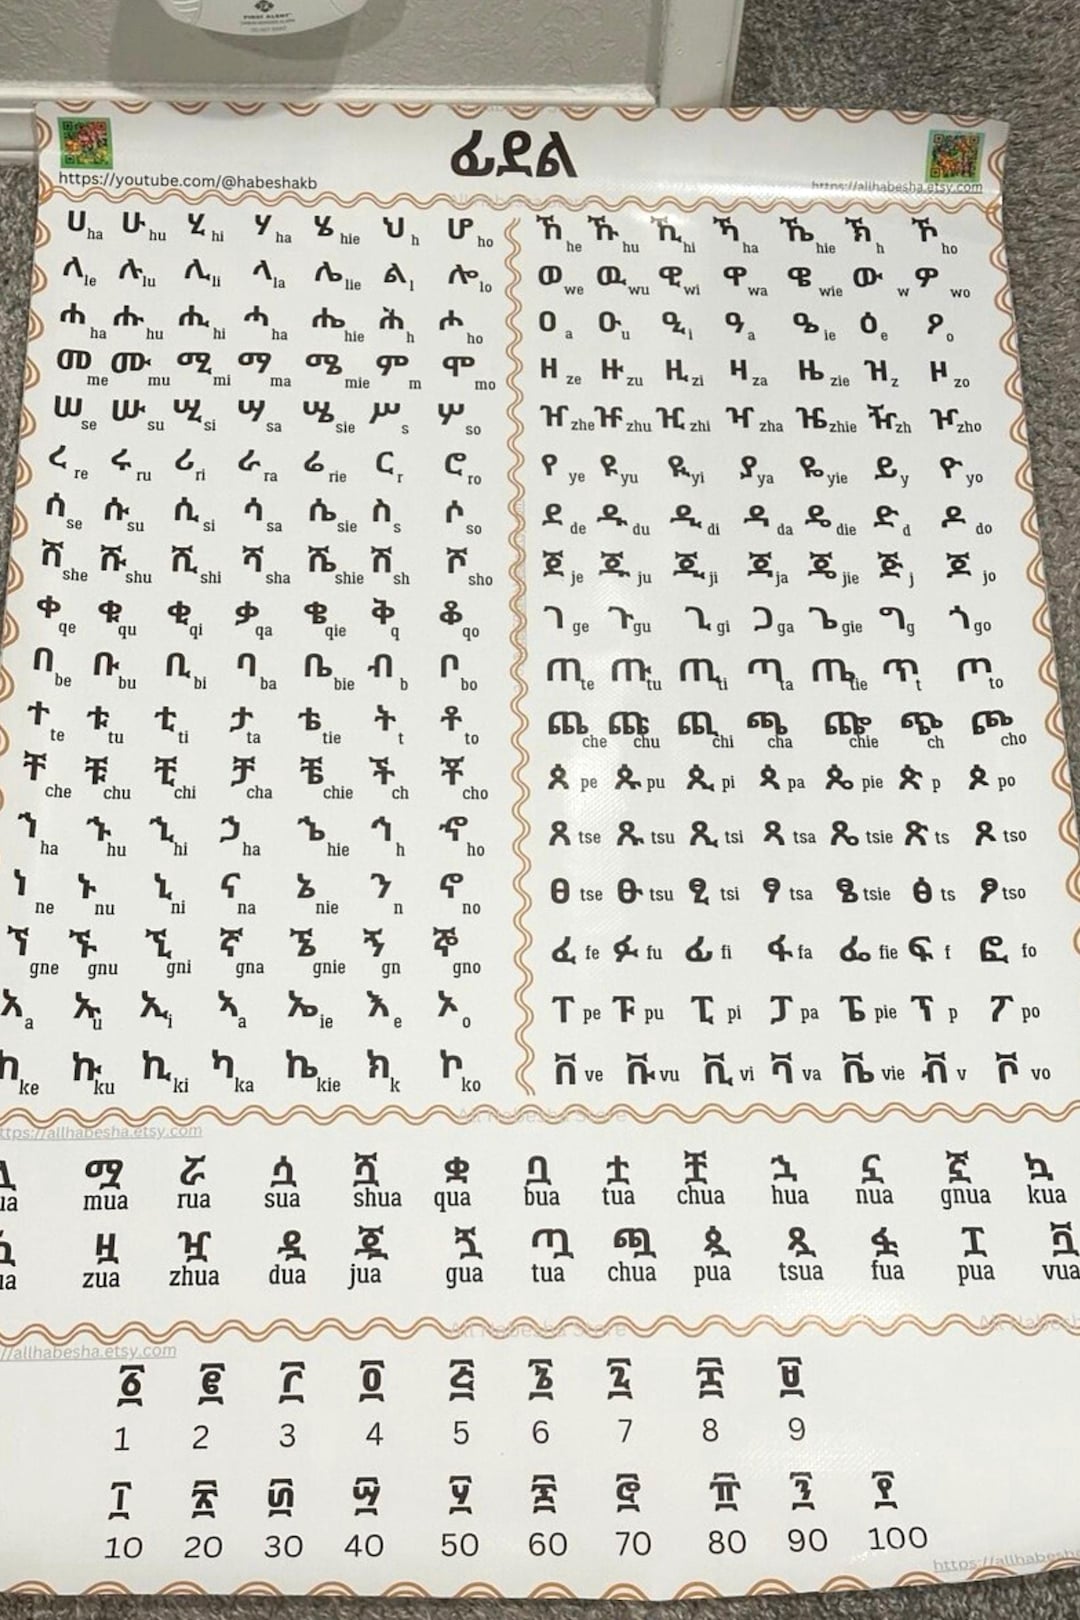 FIRST ALERT
ፊደል
https://youtube.com/@habeshakb
https://allhabesha.etsy.com
ሀ ha ሁ hu ሂ hi ሃ ha ሄ hie ህ h ሆ ho
ለ le ሉ lu ሊ li ላ la ሌ lie ል l ሎ lo
ሐ ha ሑ hu ሒ hi ሓ ha ሔ hie ሕ h ሖ ho
መ me ሙ mu ሚ mi ማ ma ሜ mie ም m ሞ mo
ሠ se ሡ su ሢ si ሣ sa ሤ sie ሥ s ሦ so
ረ re ሩ ru ሪ ri ራ ra ሬ rie ር r ሮ ro
ሰ se ሱ su ሲ si ሳ sa ሴ sie ስ s ሶ so
ሸ she ሹ shu ሺ shi ሻ sha ሼ shie ሸ sh ሾ sho
ቀ qe ቁ qu ቂ qi ቃ qa ቄ qie ቅ q ቆ qo
በ be ቡ bu ቢ bi ባ ba ቤ bie ብ b ቦ bo
ተ te ቱ tu ቲ ti ታ ta ቴ tie ት t ቶ to
ቸ che ቹ chu ቺ chi ቻ cha ቼ chie ች ch ቾ cho
ኀ ha ኁ hu ኂ hi ኃ ha ኄ hie ኅ h ኆ ho
ነ ne ኑ nu ኒ ni ና na ኔ nie ን n ኖ no
ኘ gne ኙ gnu ኚ gni ኛ gna ኜ gnie ኝ gn ኞ gno
አ a ኡ u ኢ i ኣ a ኤ ie እ e ኦ o
ከ ke ኩ ku ኪ ki ካ ka ኬ kie ክ k ኮ ko
ኸ he ኹ hu ኺ hi ኻ ha ኼ hie ኽ h ኾ ho
ወ we ዉ wu ዊ wi ዋ wa ዌ wie ው w ዎ wo
ዐ a ዑ u ዒ i ዓ a ዔ ie ዕ e ዖ o
ዘ ze ዙ zu ዚ zi ዛ za ዜ zie ዝ z ዞ zo
ዠ zhe ዡ zhu ዢ zhi ዣ zha ዤ zhie ዥ zh ዦ zho
የ ye ዩ yu ዪ yi ያ ya ዬ yie ይ y ዮ yo
ደ de ዱ du ዲ di ዳ da ዴ die ድ d ዶ do
ጀ je ጁ ju ጂ ji ጃ ja ጄ jie ጅ j ጆ jo
ገ ge ጉ gu ጊ gi ጋ ga ጌ gie ግ g ጎ go
ጠ te ጡ tu ጢ ti ጣ ta ጤ tie ጥ t ጦ to
ጨ che ጩ chu ጪ chi ጫ cha ጬ chie ጭ ch ጮ cho
ጰ pe ጱ pu ጲ pi ጳ pa ጴ pie ጵ p ጶ po
ጸ tse ጹ tsu ጺ tsi ጻ tsa ጼ tsie ጽ ts ጾ tso
ፀ tse ፁ tsu ፂ tsi ፃ tsa ፄ tsie ፅ ts ፆ tso
ፈ fe ፉ fu ፊ fi ፋ fa ፌ fie ፍ f ፎ fo
ፐ pe ፑ pu ፒ pi ፓ pa ፔ pie ፕ p ፖ po
ቨ ve ቩ vu ቪ vi ቫ va ቬ vie ቭ v ቮ vo
All Habesha Store
https://allhabesha.etsy.com
ሟ ሯ ሷ ሿ ቋ ቧ ቷ ቿ ኋ ኗ ኟ ኳ
mua rua sua shua qua bua tua chua hua nua gnua kua
ዟ ዧ ዷ ጇ ጓ ጧ ጯ ጷ ጿ ፏ ፗ ቯ
zua zhua dua jua gua tua chua pua tsua fua pua vua
All Habesha Store
//allhabesha.etsy.com
፩ ፪ ፫ ፬ ፭ ፮ ፯ ፰ ፱
1 2 3 4 5 6 7 8 9
፲ ፳ ፴ ፵ ፶ ፷ ፸ ፹ ፺ ፻
10 20 30 40 50 60 70 80 90 100
https://allhabesha